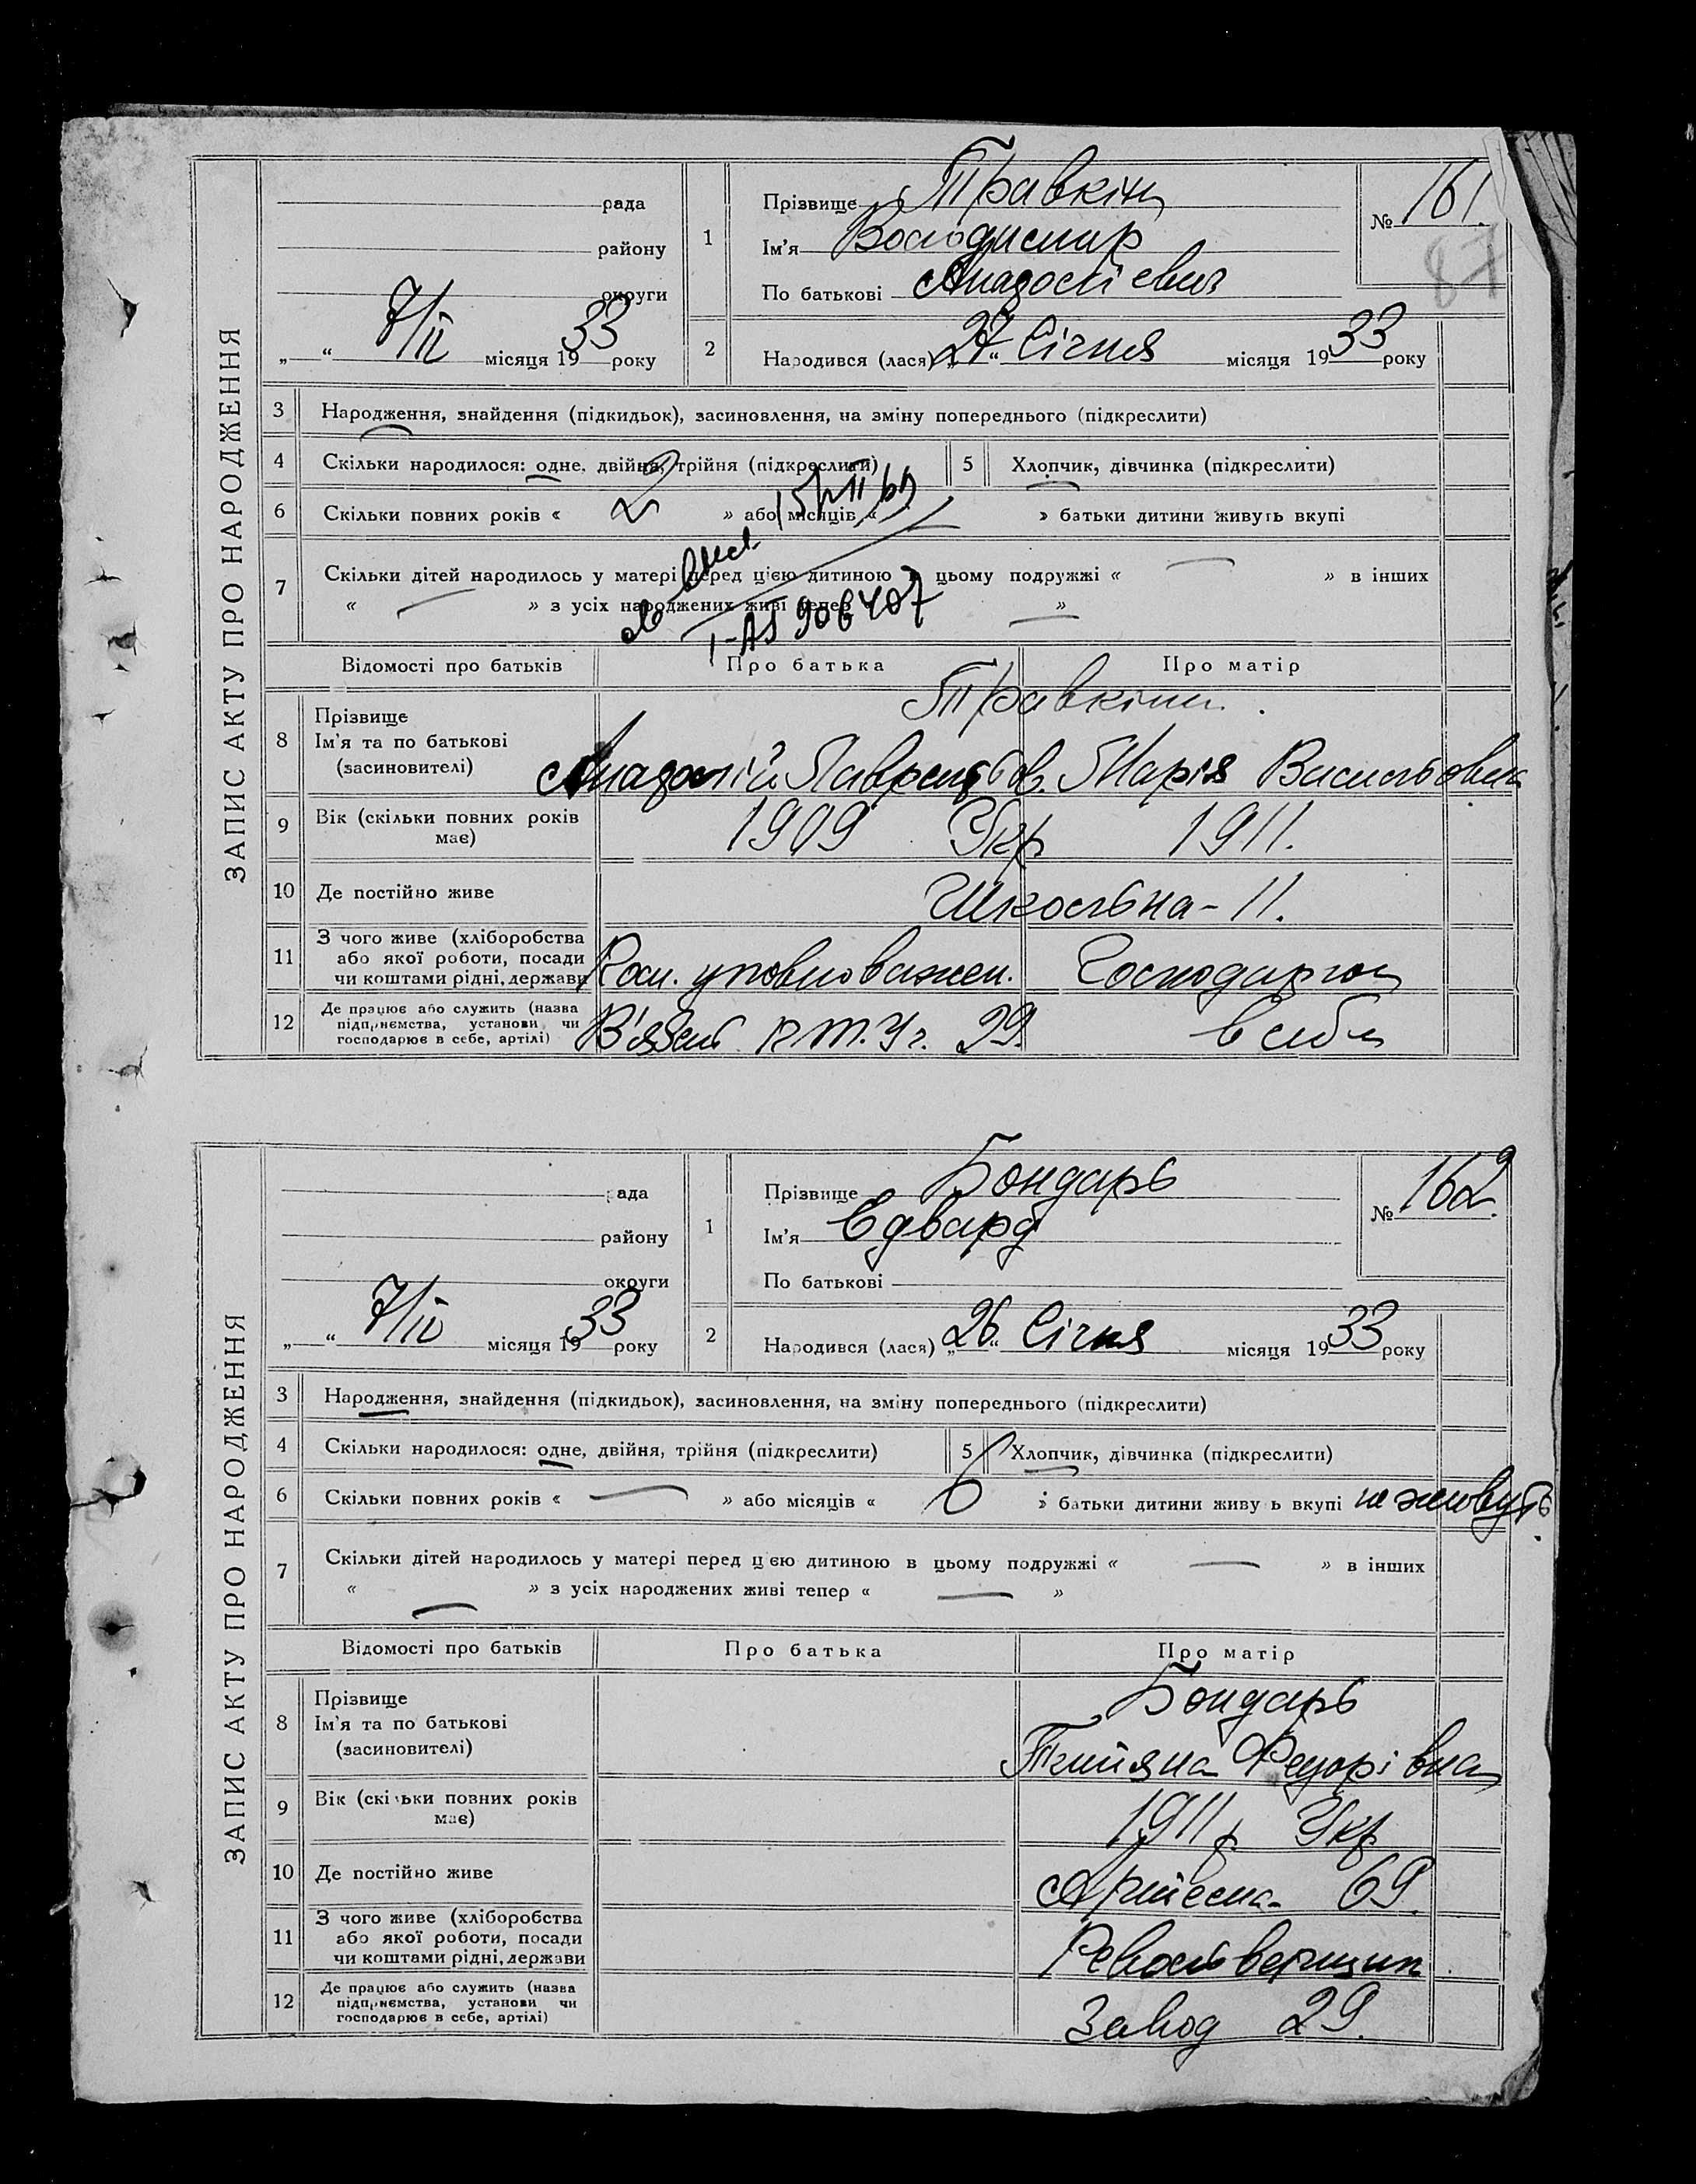 ЗАПИС АКТУ ПРО НАРОДЖЕННЯ
рада
району
округи
„ “ 7/II місяця 1933 року
1
Прізвище Травкін
Ім'я Володимир
По батькові
№ 161.
87
2
Народився (лася) „27“ Січня місяця 1933 року
3 Народження, знайдення (підкидьок), засиновлення, на зміну попереднього (підкреслити)
4 Скільки народилося: одне, двійня, трійня (підкреслити)
5 Хлопчик, дівчинка (підкреслити)
6 Скільки повних років « 2 » або місяців « » батьки дитини живуть вкупі
7 Скільки дітей народилось у матері перед цією дитиною в цьому подружжі « — » в інших
« — » з усіх народжених живі тепер « — »
906407
Відомості про батьків Про батька Про матір
8 Прізвище
Ім'я та по батькові
(засиновителі)
Травкіни.
Марія Васильовна
9 Вік (скільки повних років має) 1909 Укр 1911.
10 Де постійно живе Шкопьна - 11.
11 З чого живе (хліборобства або якої роботи, посади чи коштами рідні, держави уповноважен.
12 Де працює або служить (назва підприємства, установи чи господарює в себе, артілі) 29. в себе
ЗАПИС АКТУ ПРО НАРОДЖЕННЯ
рада
району
округи
„ “ 7/II місяця 1933 року
1
Прізвище Бондарь
Ім'я Едвард
По батькові
№ 162.
2
Народився (лася) „26“ Січня місяця 1933 року
3 Народження, знайдення (підкидьок), засиновлення, на зміну попереднього (підкреслити)
4 Скільки народилося: одне, двійня, трійня (підкреслити)
5 Хлопчик, дівчинка (підкреслити)
6 Скільки повних років « — » або місяців « » батьки дитини живуть вкупі не живуть.
7 Скільки дітей народилось у матері перед цією дитиною в цьому подружжі « — » в інших
« — » з усіх народжених живі тепер « — »
Відомості про батьків Про батька Про матір
8 Прізвище
Ім'я та по батькові
(засиновителі)
Бондарь
Тетяна Федорівна
9 Вік (скільки повних років має) 1911 р. Укр
10 Де постійно живе Артема 69.
11 З чого живе (хліборобства або якої роботи, посади чи коштами рідні, держави Револьверщик
12 Де працює або служить (назва підприємства, установи чи господарює в себе, артілі) Завод 29.